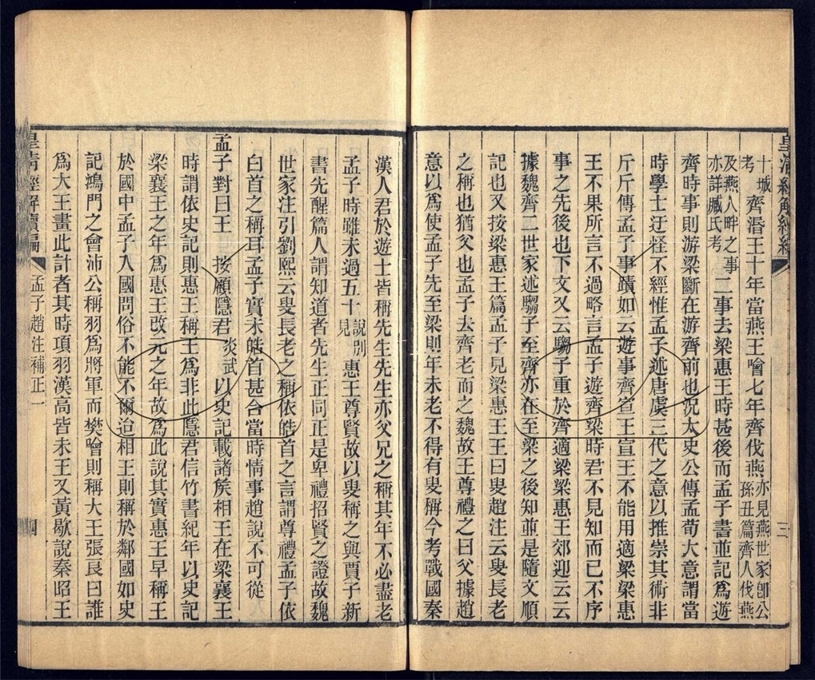 皇清經解續編
三
十城
考
齊湣王十年當燕王噲七年齊伐燕
亦見燕世家卽公
孫丑篇齊人伐燕
及燕人畔之事
亦詳臧氏考
二事去梁惠王時甚後而孟子書並記爲遊
齊時事則游梁斷在游齊前也況太史公傳孟荀大意謂當
時學士迂怪不經惟孟子述唐虞三代之意以推崇其術非
斤斤傳孟子事蹟如云遊事齊宣王宣王不能用適梁梁惠
王不果所言不過略言孟子遊齊梁時君不見知而已不序
事之先後也下文又云騶子重於齊適梁梁惠王郊迎云云
據魏齊二世家述騶子至齊亦在至梁之後知並是隨文順
記也又按梁惠王篇孟子見梁惠王王曰叟趙注云叟長老
之稱也猶父也孟子去齊老而之魏故王尊禮之曰父據趙
意以爲使孟子先至梁則年未老不得有叟稱今考戰國秦
漢人君於遊士皆稱先生先生亦父兄之稱其年不必盡老
孟子時雖未過五十
說別
見
惠王尊賢故以叟稱之與賈子新
書先醒篇人謂知道者先生正同正是卑禮招賢之證故魏
世家注引劉熙云叟長老之稱依皓首之言謂尊禮孟子依
白首之稱耳孟子實未皓首甚合當時情事趙說不可從
孟子對曰王 按顧隱君
炎武
以史記載諸矦相王在梁襄王
時謂依史記則惠王稱王爲非此隱君信竹書紀年以史記
梁襄王之年爲惠王改元之年故爲此說其實惠王早稱王
於國中孟子入國問俗不能不爾迨相王則稱於鄰國如史
記鴻門之會沛公稱羽爲將軍而樊噲則稱大王張良曰誰
爲大王畫此計者其時項羽漢高皆未王又黃歇說秦昭王
皇淸經解續編
孟子趙注補正一
四